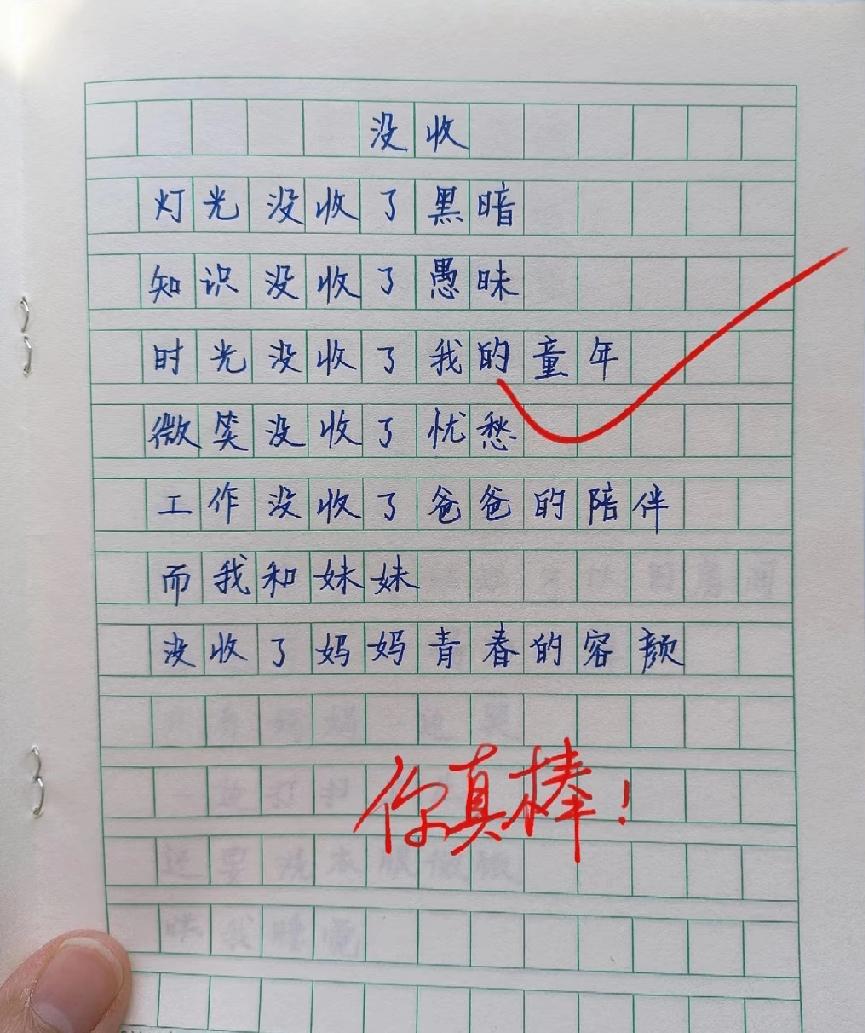 没收
灯光没收了黑暗
知识没收了愚昧
时光没收了我的童年
微笑没收了忧愁
工作没收了爸爸的陪伴
而我和妹妹
没收了妈妈青春的容颜
你真棒!